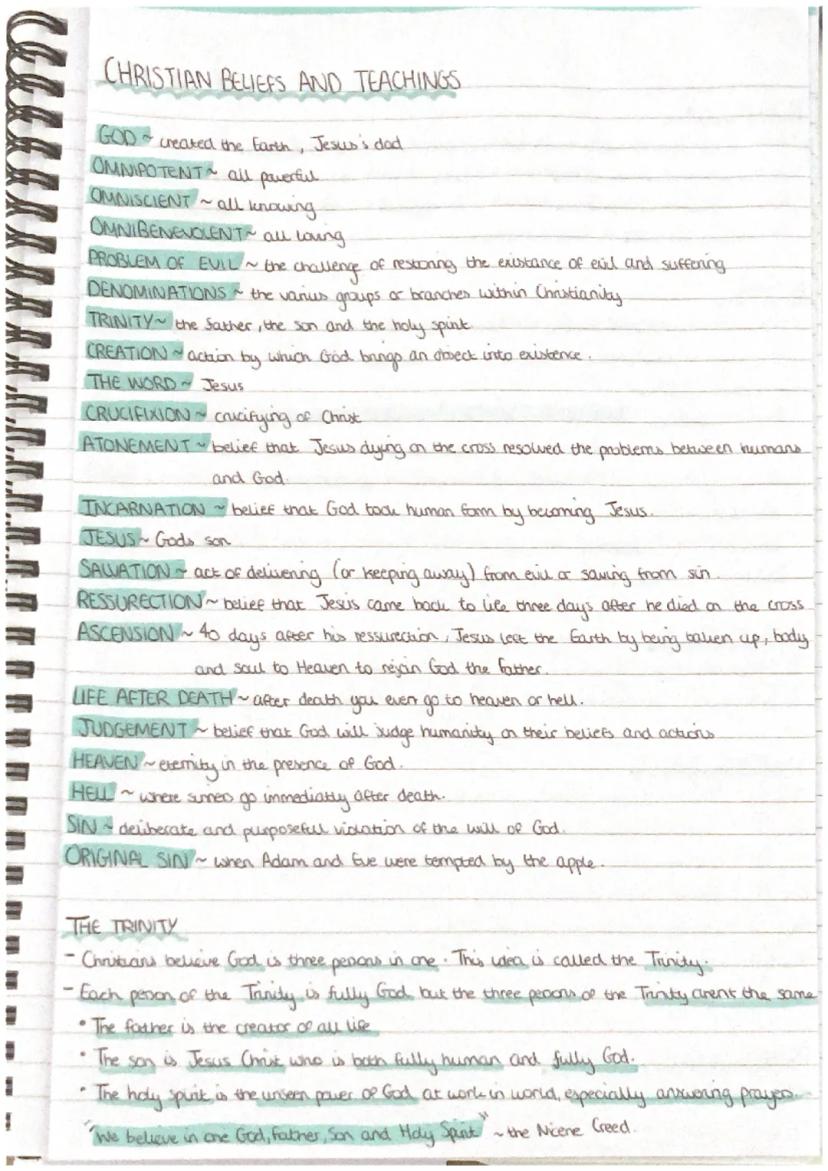 CHRISTIAN BELIEFS AND TEACHINGS
GOD ~ created the Earth, Jesus's dad
OMNIPOTENT ~ all powerful
OMNISCIENT ~ all knowing
OMNIBENEVOLENT ~ all loving
PROBLEM OF EVIL ~ the challenge of restoring the existance of evil and suffering
DENOMINATIONS ~ the various groups or branches within Christianity
TRINITY ~ the father, the son and the holy spirit
CREATION ~ action by which God brings an object into existence.
THE WORD ~ Jesus
CRUCIFIXION ~ crucifying of Christ
ATONEMENT ~ belief that Jesus dying on the cross resolved the problems between humans
and God.
INCARNATION ~ belief that God took human form by becoming Jesus.
JESUS ~ Gods son
SALVATION ~ act of delivering (or keeping away) from evil or saving from sin.
RESSURECTION ~ belief that Jesus came back to life three days after he died on the cross
ASCENSION ~ 40 days after his ressurection, Jesus left the Earth by being taken up, body
and soul to Heaven to rejoin God the father.
LIFE AFTER DEATH ~ after death you ever go to heaven or hell.
JUDGEMENT ~ belief that God will judge humanity on their beliefs and actions
HEAVEN ~ eternity in the presence of God.
HELL ~ where sinners go immediatly after death.
SIN ~ deliberate and purposeful violation of the will of God.
ORIGINAL SIN ~ when Adam and Eve were tempted by the apple.
THE TRINITY
- Christians believe God is three persons in one. This idea is called the Trinity.
- Each person of the Trinity is fully God but the three persons of the Trinity arent the same
• The father is the creator of all life
• The son is Jesus Christ who is both fully human and fully God.
• The holy spirit is the unseen power of God at work in world, especially answering prayers.
"We believe in one God, Father, Son and Holy Spirit" ~ the Nicene Creed.